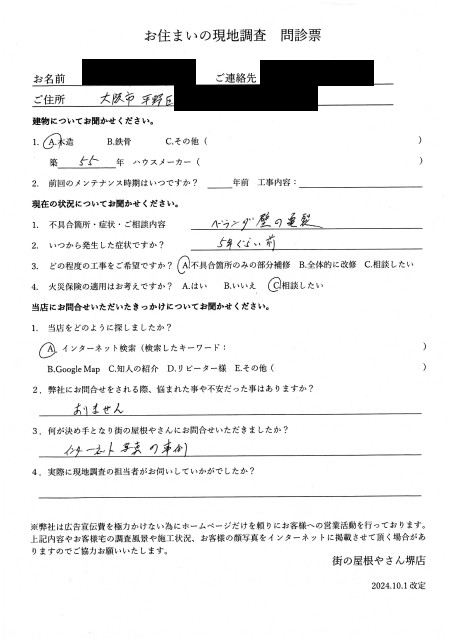 お住まいの現地調査　問診票
お名前　ご連絡先
ご住所　大阪市 平野区
建物についてお聞かせください。
1. A.木造　B.鉄骨　C.その他（　）
築 55 年　ハウスメーカー（　）
2. 前回のメンテナンス時期はいつですか？ ____年前　工事内容：
現在の状況についてお聞かせください。
1. 不具合箇所・症状・ご相談内容　ベランダ 壁の亀裂
2. いつから発生した症状ですか？　5年ぐらい前
3. どの程度の工事をご希望ですか？ A.不具合箇所のみの部分補修　B.全体的に改修　C.相談したい
4. 火災保険の適用はお考えですか？ A.はい　B.いいえ　C.相談したい
当店にお問合せいただいたきっかけについてお聞かせください。
1. 当店をどのように探しましたか？
A. インターネット検索（検索したキーワード：　）
B.Google Map　C.知人の紹介　D.リピーター様　E.その他（　）
2. 弊社にお問合せをされる際、悩まれた事や不安だった事はありますか？
ありません
3. 何が決め手となり街の屋根やさんにお問合せいただきましたか？
インターネット 写真の事例
4. 実際に現地調査の担当者がお伺いしていかがでしたか？
※弊社は広告宣伝費を極力かけない為にホームページだけを頼りにお客様への営業活動を行っております。
上記内容やお客様宅の調査風景や施工状況、お客様の顔写真をインターネットに掲載させて頂く場合があ
りますのでご協力お願いいたします。
街の屋根やさん堺店
2024.10.1 改定